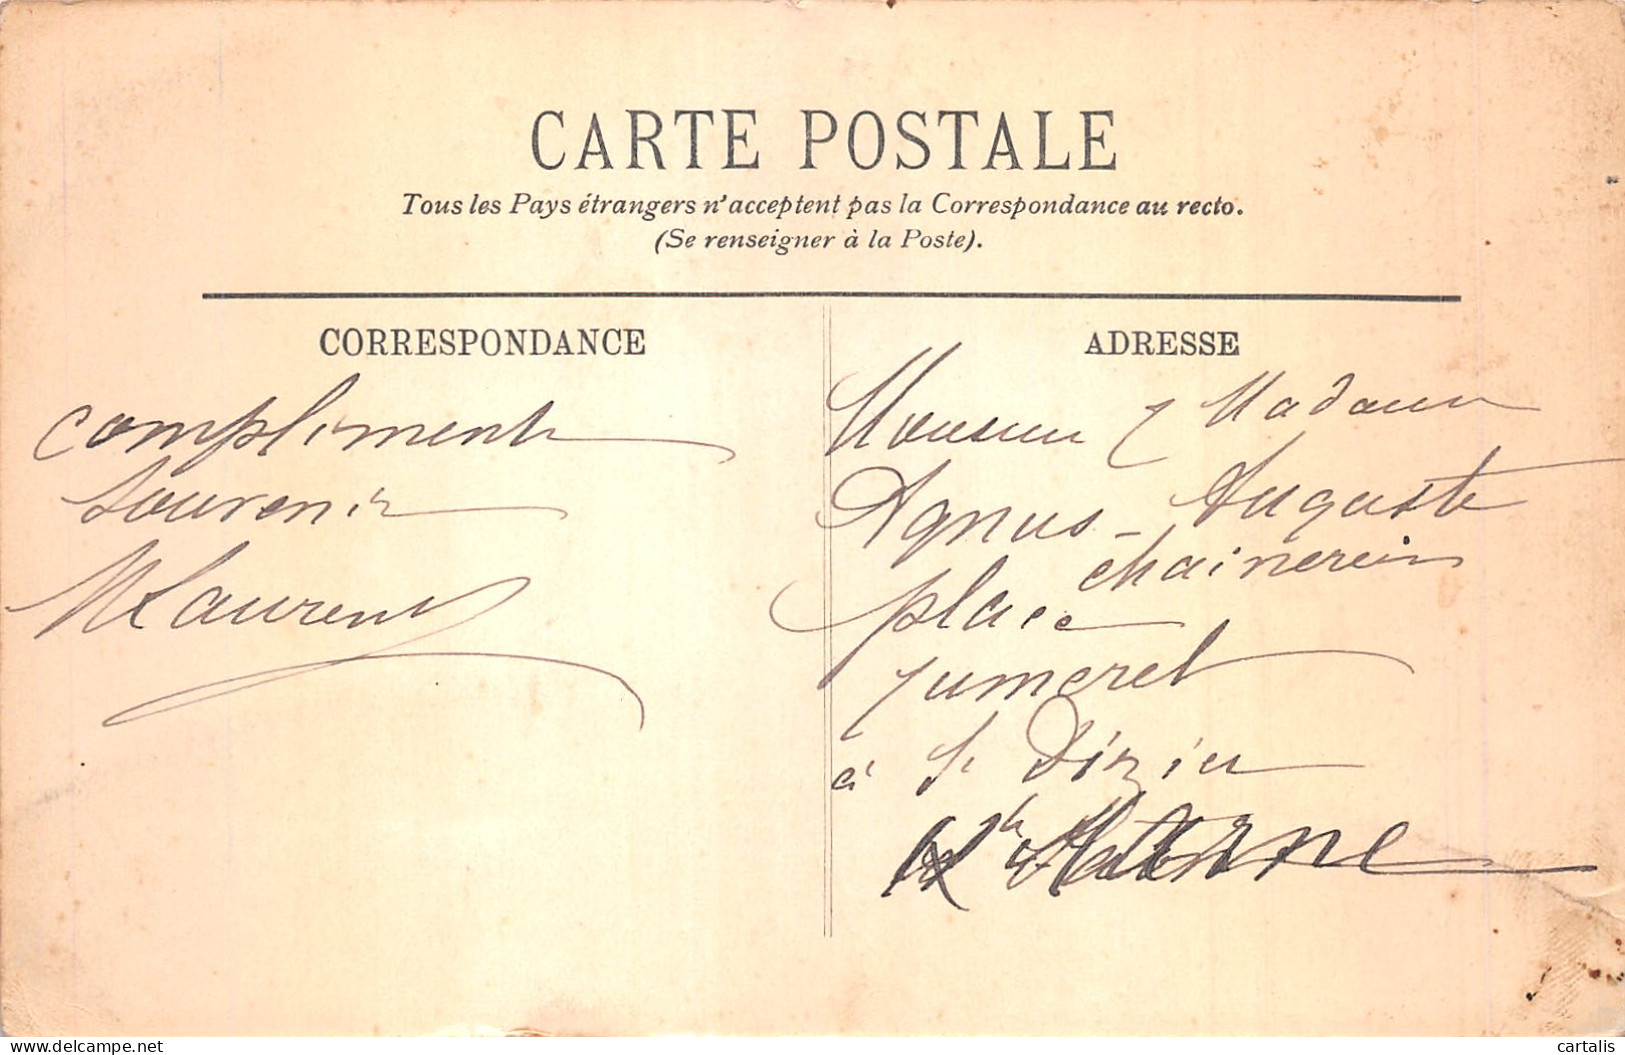 CARTE POSTALE
Tous les Pays étrangers n'acceptent pas la Correspondance au recto.
(Se renseigner à la Poste).
CORRESPONDANCE
compliment
Souvenir
Laurent
ADRESSE
Monsieur Madame
Agnus - Auguste
place
à St Dizier
Hte Marne
delcampe.net
cartalis